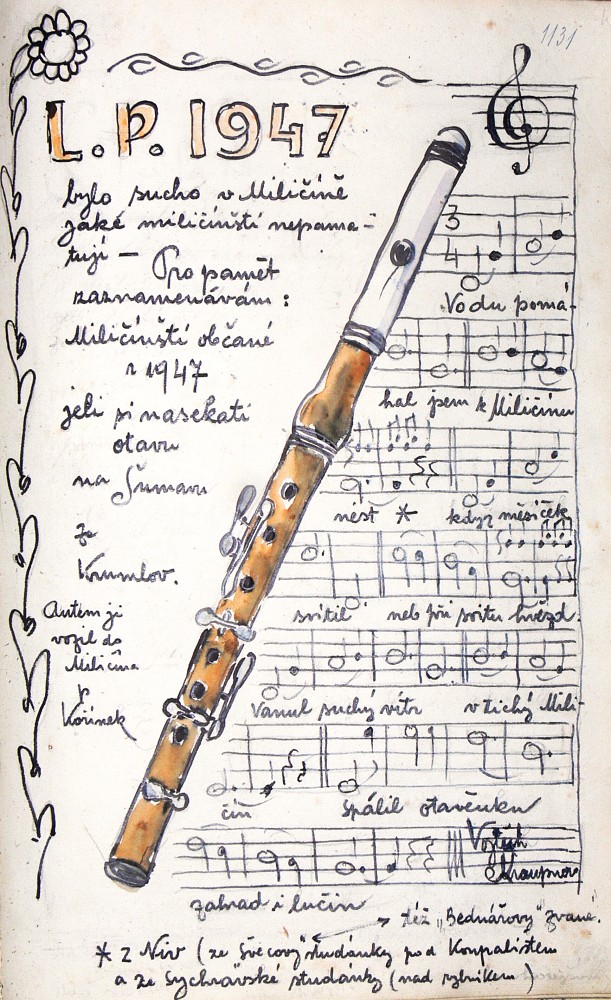 1131
L.P. 1947
bylo sucho v Miličíně
jaké miličínští nepama-
tují — Pro paměť
zaznamenávám:
Miličínští občané
r 1947
jeli si nasekati
otavu
na Šumavu
za
Krumlov.
Autem ji
vozil do
Miličína
p
Kořínek
3
4
Vodu pomá-
hal jsem k Miličínu
nést * když měsíček
svítil neb při svitu hvězd.
Vanul suchý vítr v tichý Mili-
čín spálil otavěnku
zahrad i lučin
Vojtěch
též "Bednářovy" zvané.
* z Niv (ze Švecovy studánky pod Koupalištěm
a ze Sychrovské studánky (nad rybníkem)